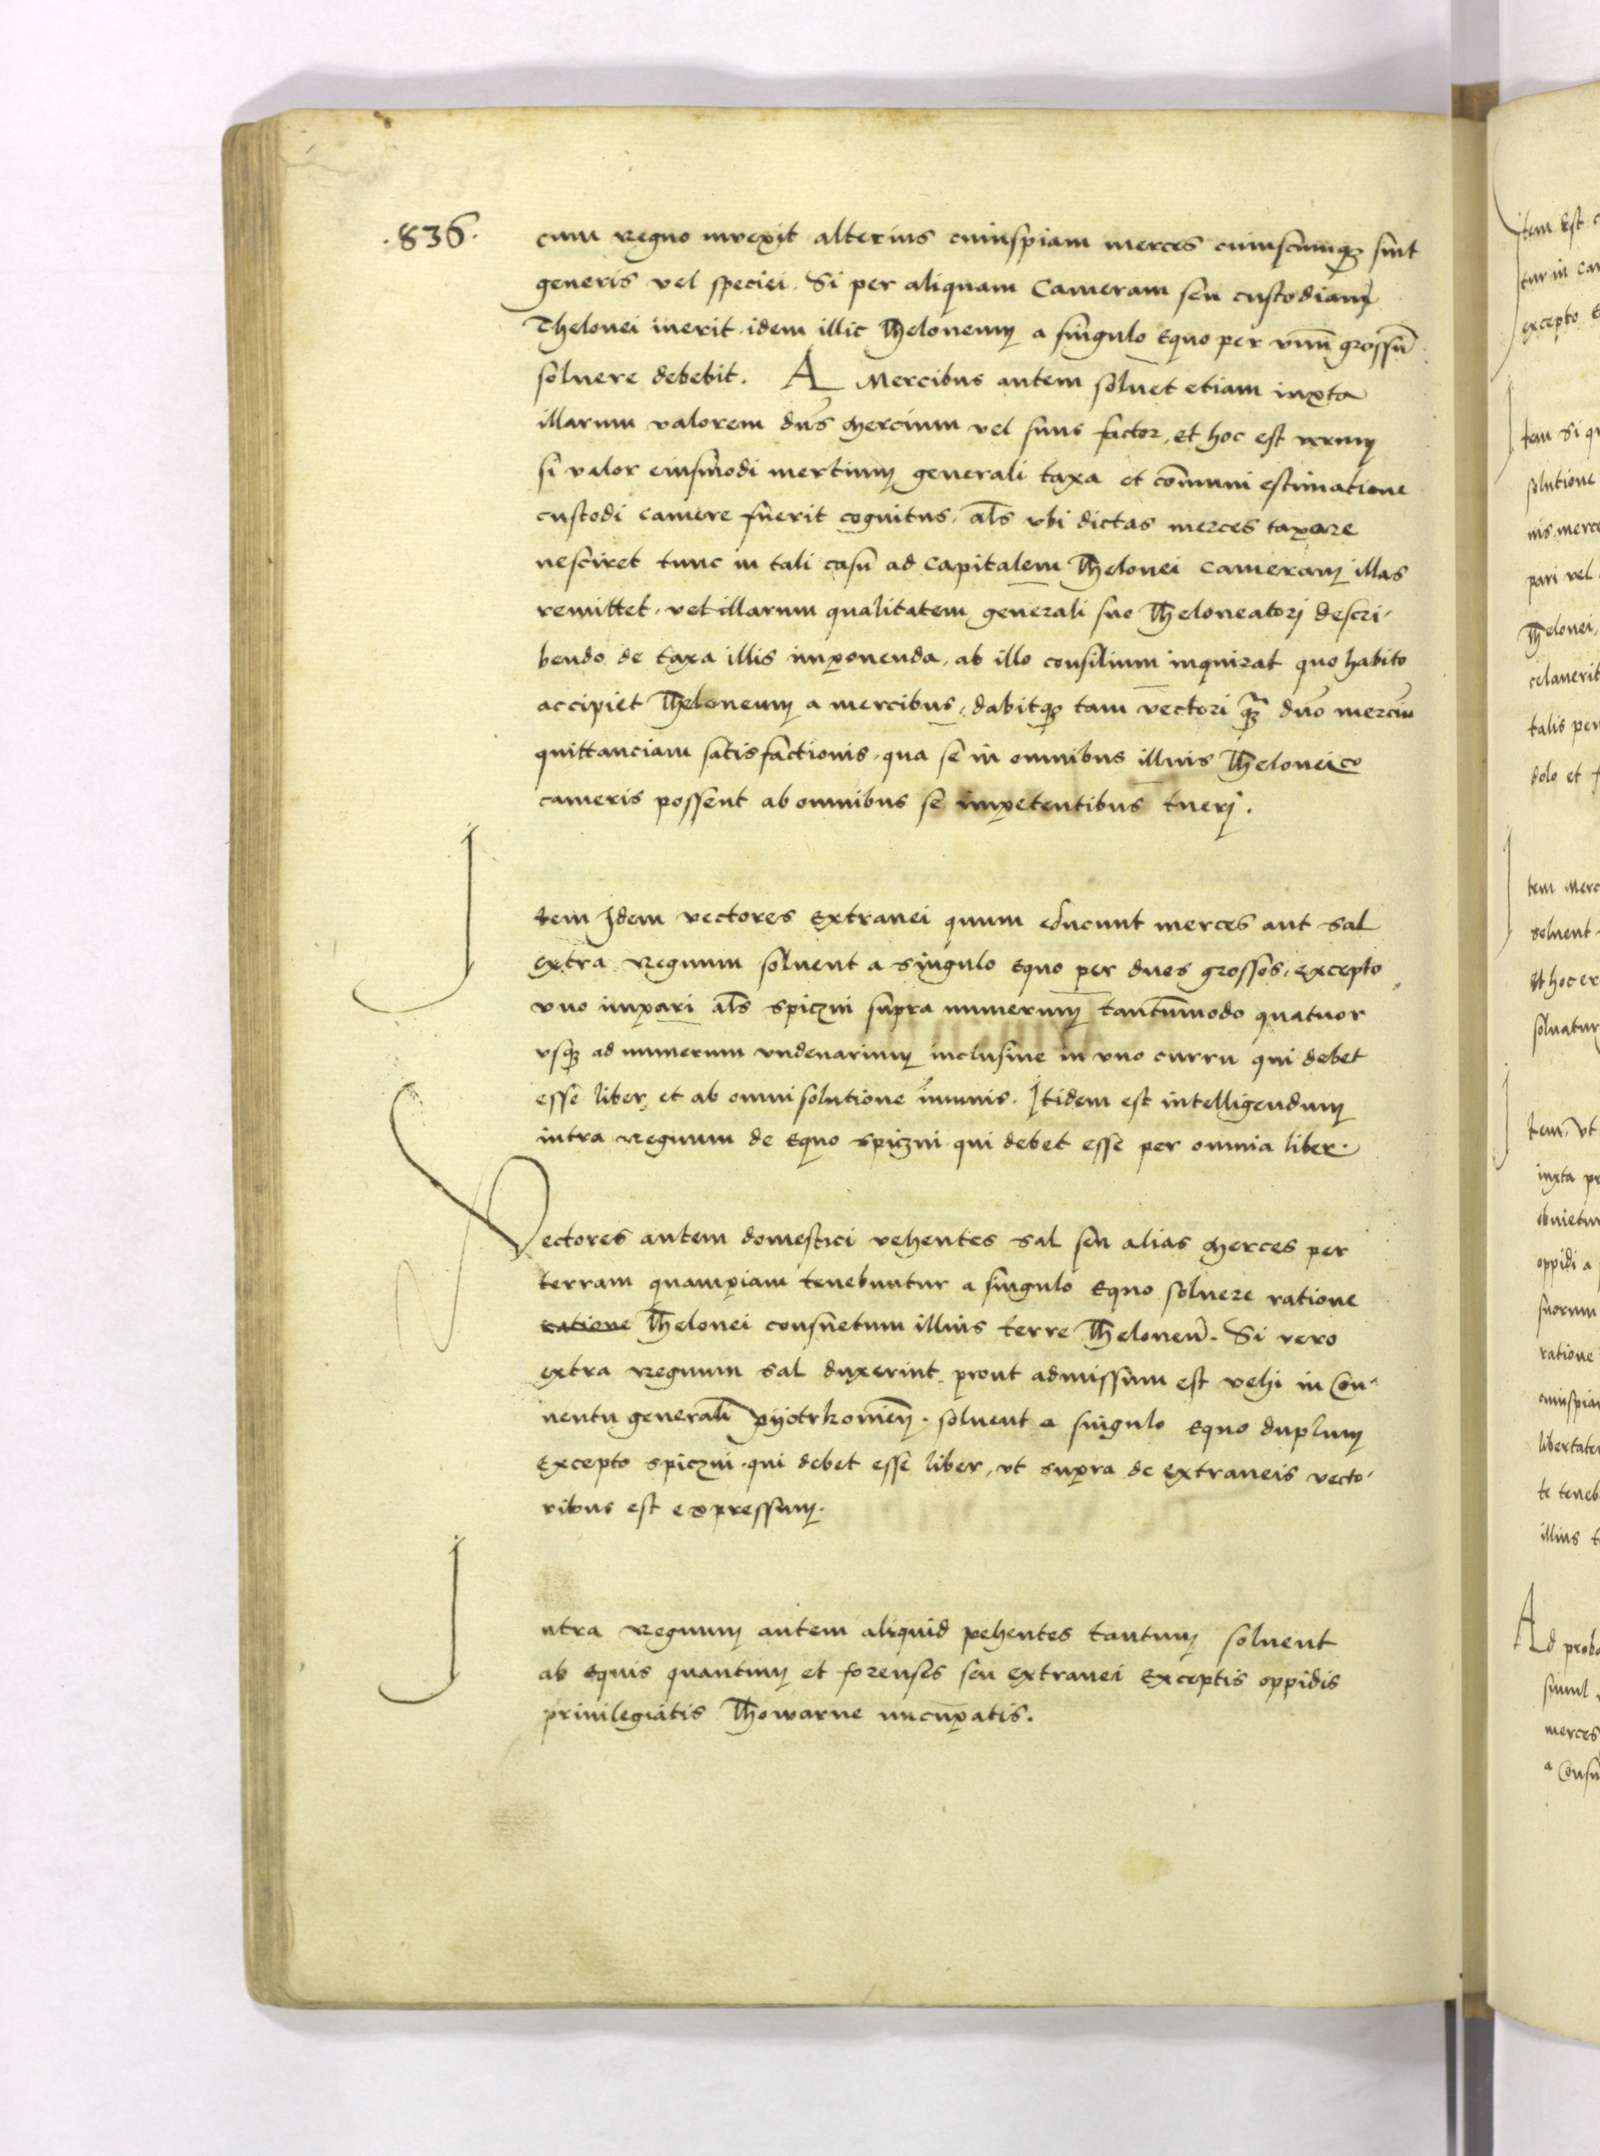 .836.
cum regno inuexit alterius cuiuspiam merces cuiuscumqȝ sint
generis vel speciei. Si per aliquam Cameram seu custodiam
Thelonei inerit idem illic Theloneum a singulo equo per vnũ grossũ
soluere debebit. A Mercibus autem soluet etiam iuxta
illarum valorem dns mercium vel suus factor, et hoc est verum
si valor eiusmodi mertium generali taxa et cõmuni estimatione
custodi camere fuerit cognitus. als vbi dictas merces taxare
nesciret tunc in tali casu ad capitalem Thelonei cameram illas
remittet. vel illarum qualitatem generali suo Theloneatorj descri-
bendo de taxa illis imponenda, ab illo consilium inquirat quo habito
accipiet Theloneum a mercibus, dabitqȝ tam vectori qȝ dño merciũ
quittanciam satisfactionis. qua se in omnibus illius Thelonei
cameris possent ab omnibus se impetentibus tuerj.
Item Idem vectores extranei quum educunt merces aut sal
extra regnum soluent a singulo equo per duos grossos, excepto
vno impari als spiczni supra numerum tantũmodo quatuor
vsqȝ ad numerum vndenarium inclusiue in vno curru qui debet
esse liber, et ab omni solutione ĩmunis. Itidem est intelligendum
intra regnum de equo spiczni qui debet esse per omnia liber.
Vectores autem domestici vehentes sal seu alias merces per
terram quampiam tenebuntur a singulo equo soluere ratione
ratione Thelonei consuetum illius terre Theloneũ. Si vero
extra regnum sal duxerint prout admissum est vehi in Con-
uentu generali pyotrkouieñ. soluent a singulo equo duplum
excepto spiczni. qui debet esse liber, vt supra de extraneis vecto-
ribus est expressum.
Intra regnum autem aliquid vehentes tantum soluent
ab equis quantum et forenses seu extranei exceptis oppidis
priuilegiatis Thowarne nuncupatis.